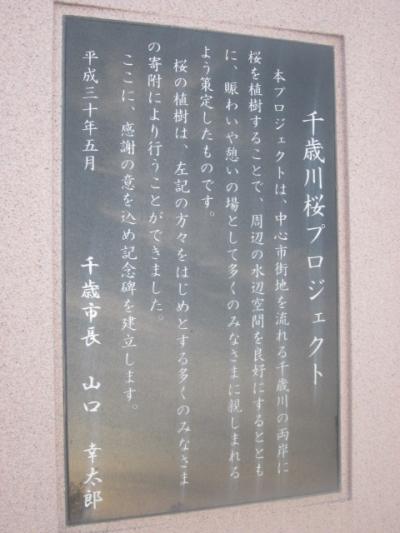 千歳川桜プロジェクト
本プロジェクトは、中心市街地を流れる千歳川の両岸に
桜を植樹することで、周辺の水辺空間を良好にするととも
に、賑わいや憩いの場として多くのみなさまに親しまれる
よう策定したものです。
桜の植樹は、左記の方々をはじめとする多くのみなさま
の寄附により行うことができました。
ここに、感謝の意を込め記念碑を建立します。
平成三十年五月
千歳市長 山口 幸太郎